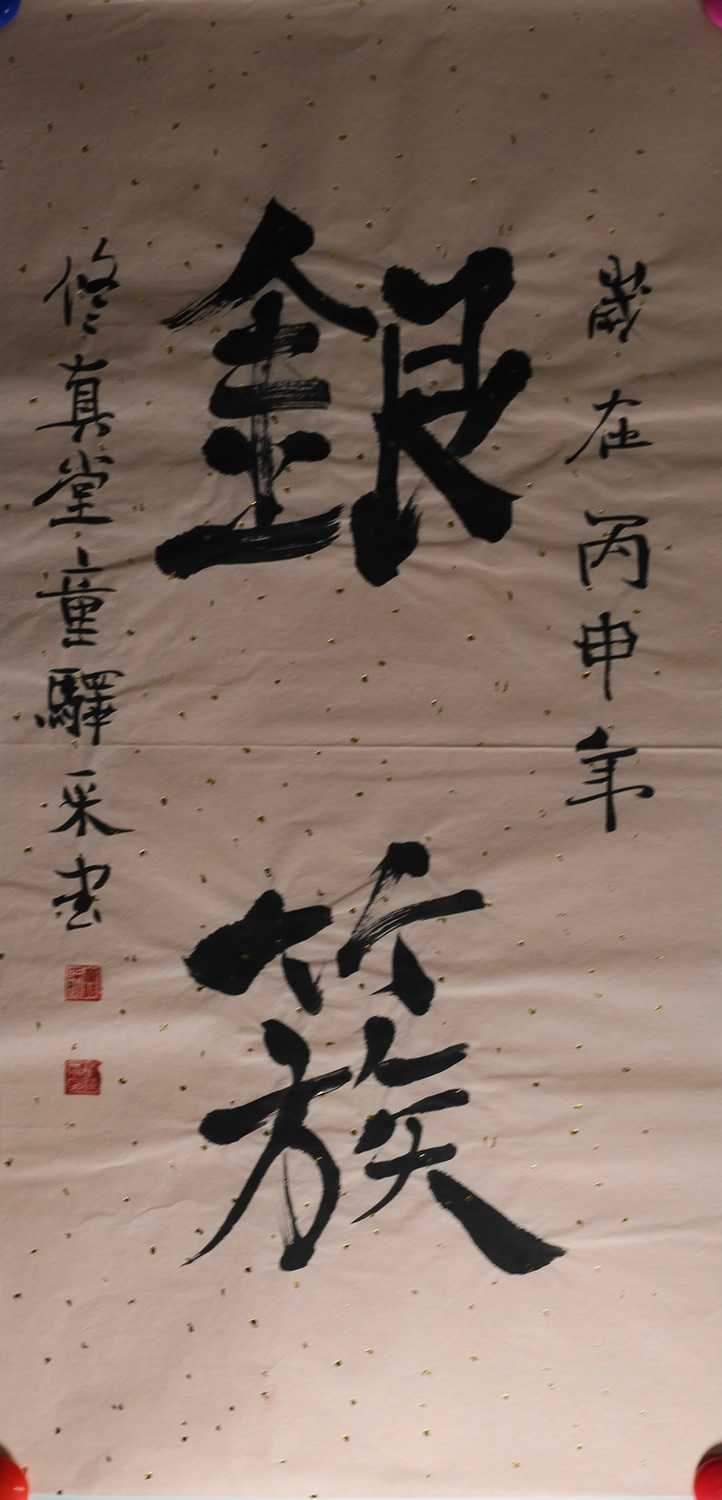 歲在丙申年
銀簇
修真堂童驛采書